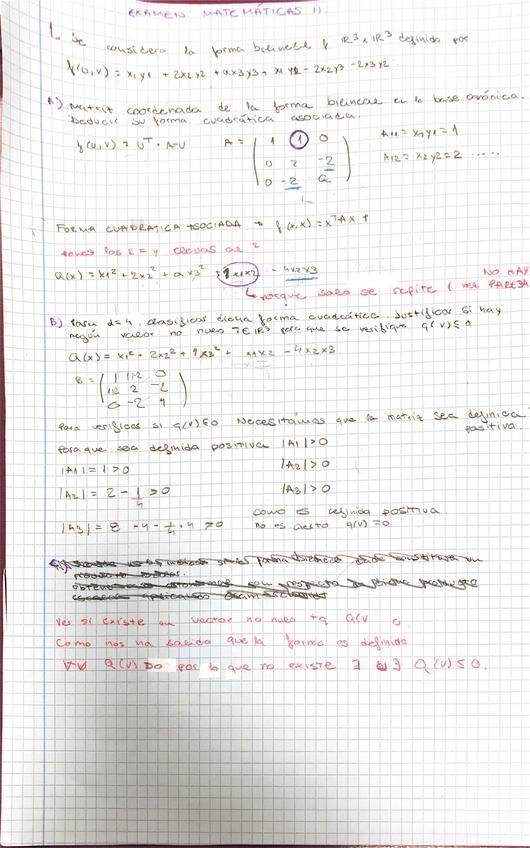 EXAMEN MATEMÁTICAS II.
1. Se considera la forma bilineal f ℝ³ x ℝ³ definida por
f(u,v) = x1y1 + 2x2y2 + ax3y3 + x1y2 - 2x2y3 - 2x3y2.
A) Matriz coordenada de la forma bilineal en la base canónica.
Deducir su forma cuadrática asociada.
f(u,v) = UT · A·U A = ( 1 1 0
0 2 -2
0 -2 a ) A11 = x1y1 = 1
A12 = x2y2 = 2 .....
FORMA CUADRATICA ASOCIADA → f(x,x) = xT A x
las x = y elevas al 2
Q(x) = x1² + 2x2² + ax3² + 1x1x2 - 4x2x3
NO HAY
↳ porque solo se repite 1 vez PAREJA
B) Para d=4, clasificar dicha forma cuadrática. Justificar si hay
algún valor no nulo v∈ℝ³ para que se verifique q(v)≤0
Q(x) = x1² + 2x2² + 4x3² + x1x2 - 4x2x3
B = ( 1 1/2 0
1/2 2 -2
0 -2 4 )
Para verificar si q(v)≤0 Necesitamos que la matriz sea definida
positiva.
Para que sea definida positiva |A1| > 0
|A1| = 1 > 0 |A2| > 0
|A2| = 2 - 1/4 > 0 |A3| > 0
|A3| = 8 - 4 - 1/4 · 4 > 0 como es definida positiva
no es cierto q(v)=0
Ves si existe un vector no nulo tq Q(v
Como nos ha salido que la forma es definida
∀v Q(v) > 0 por lo que no existe Q(v) ≤ 0.